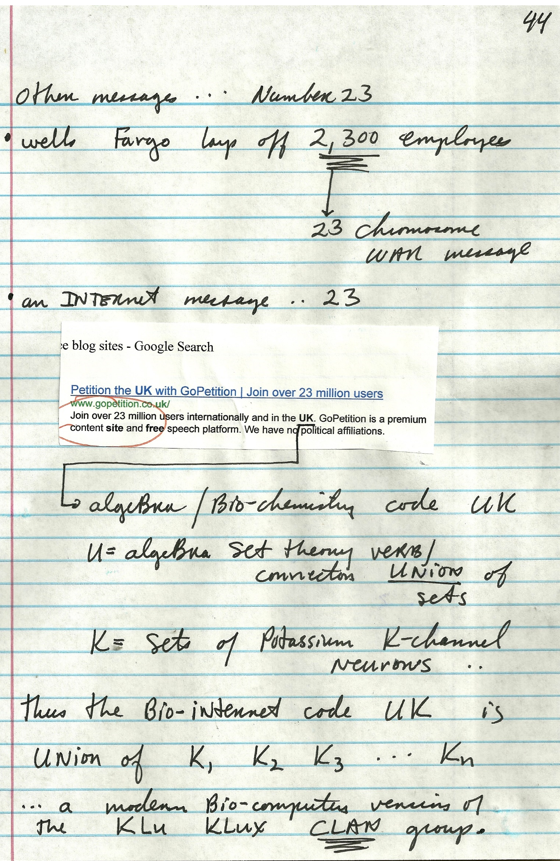 44
Other messages ... Number 23
• wells Fargo lays off 2,300 employees
23 chromosome
WAR message
• an INTERnet message .. 23
e blog sites - Google Search
Petition the UK with GoPetition | Join over 23 million users
www.gopetition.co.uk/
Join over 23 million users internationally and in the UK. GoPetition is a premium
content site and free speech platform. We have no political affiliations.
algeBra / Bio-chemistry code UK
U = algeBra set theory verb/
connector UNION of
sets
K = sets of Potassium K-channel
Neurons ..
thus the Bio-internet code UK is
UNion of K1 K2 K3 ... Kn
... a modern Bio-computer version of
the KLu KLux CLAN group.